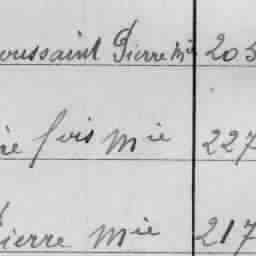 oussaint Pierre Mie 205
re fois Mie 227
Pierre Mie 217